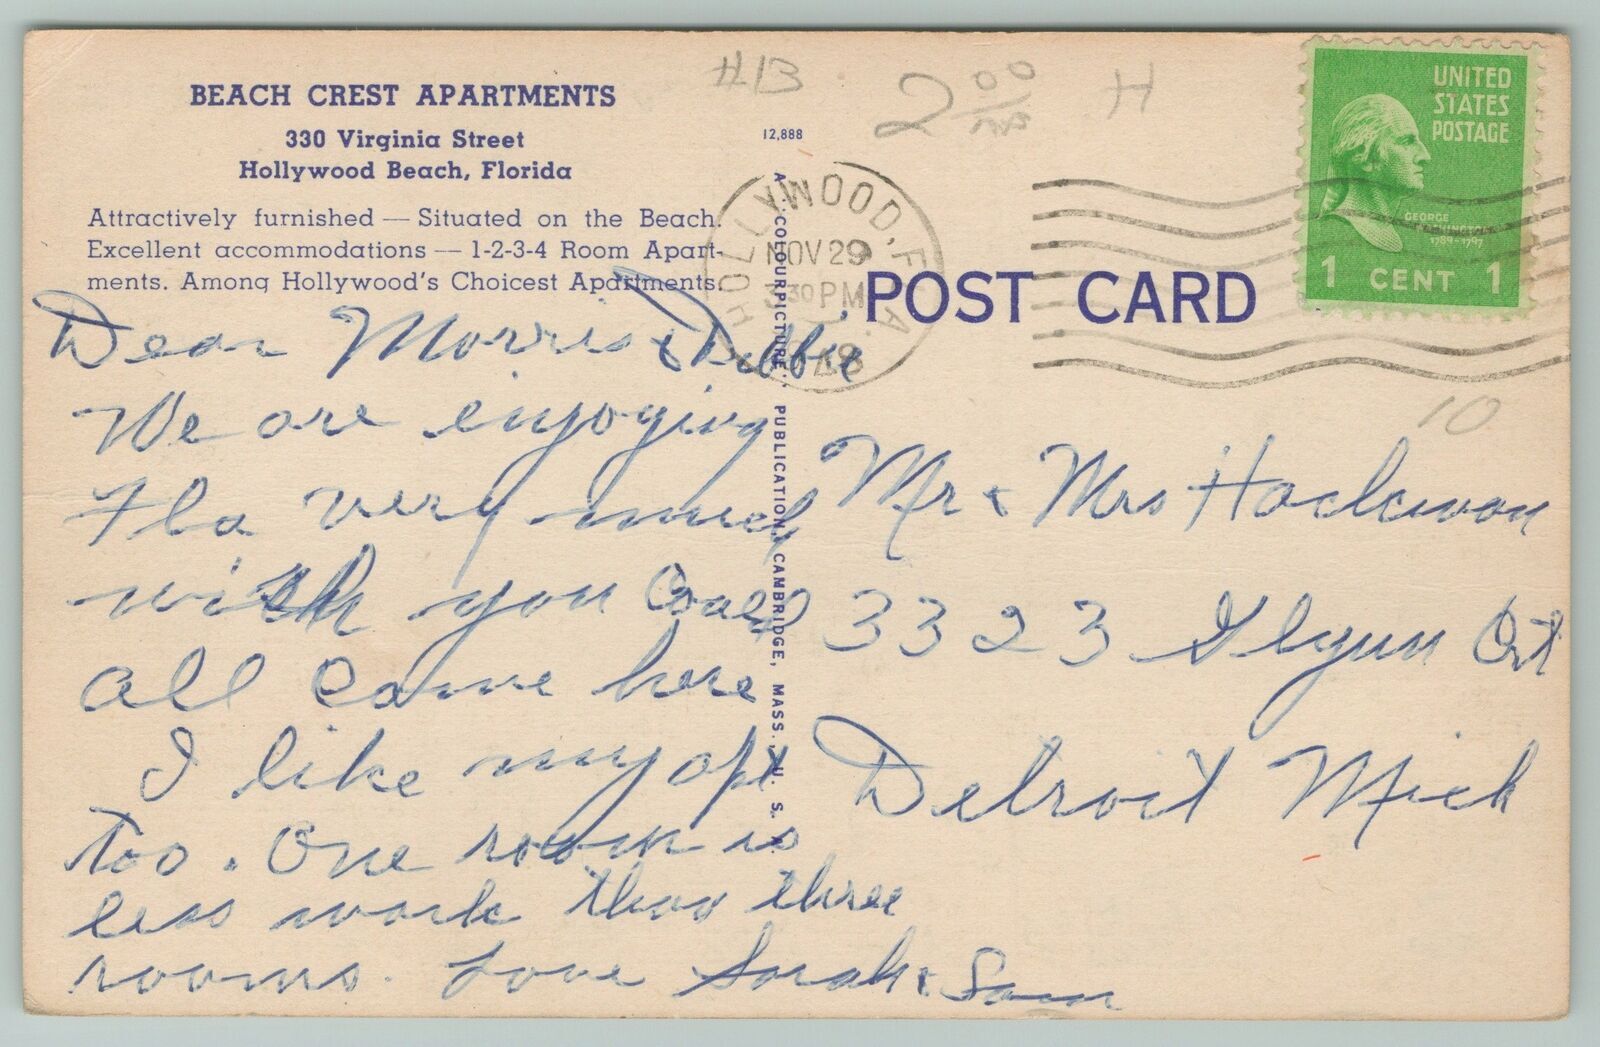 BEACH CREST APARTMENTS
330 Virginia Street
Hollywood Beach, Florida
Attractively furnished — Situated on the Beach.
Excellent accommodations — 1-2-3-4 Room Apart-
ments. Among Hollywood's Choicest Apartments.
Dear Morris & Debbie
We are enjoying
Fla very much
wish you could
all come here
I like my apt
too. One room is
less work than three
rooms. Love Sarah & Sam
12,888
A "COLOURPICTURE" PUBLICATION, CAMBRIDGE, MASS., U. S. A.
#13
2 00
H
HOLLYWOOD, FLA.
NOV 29
3 30 PM
POST CARD
UNITED
STATES
POSTAGE
GEORGE
WASHINGTON
1789-1797
1 CENT 1
10
Mr & Mrs
3323 Glynn Crt
Detroit Mich